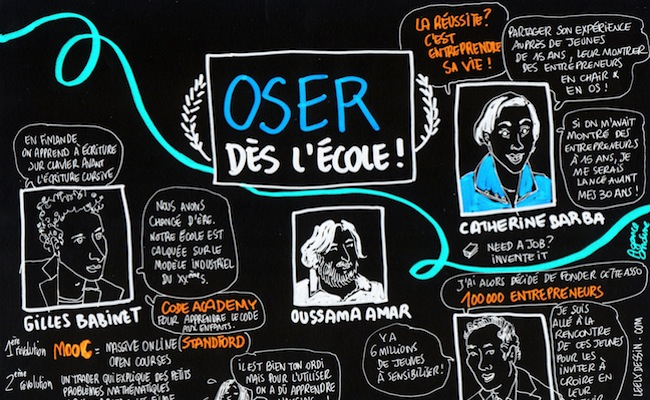 OSER
DÈS L'ÉCOLE !
LA RÉUSSITE ?
C'EST
ENTREPRENDRE
SA VIE !
PARTAGER SON EXPÉRIENCE
AUPRÈS DE JEUNES
DE 15 ANS, LEUR MONTRER
DES ENTREPRENEURS
EN CHAIR &
EN OS !
SI ON M'AVAIT
MONTRÉ DES
ENTREPRENEURS
À 15 ANS, JE
ME SERAIS
LANCÉ AVANT
MES 30 ANS !
CATHERINE BARBA
NEED A JOB ?
INVENTE IT
EN FINLANDE
ON APPREND À ÉCRITURE
SUR CLAVIER AVANT
L'ÉCRITURE CURSIVE
GILLES BABINET
NOUS AVONS
CHANGÉ D'ÈRE.
NOTRE ÉCOLE EST
CALQUÉE SUR LE
MODÈLE INDUSTRIEL
DU
CODE ACADEMY
POUR APPRENDRE LE CODE
AUX ENFANTS.
OUSSAMA AMAR
J'AI ALORS DÉCIDÉ DE FONDER CETTE ASSO
100 000 ENTREPRENEURS
JE SUIS
ALLÉ À LA
RENCONTRE
DE CES JEUNES
POUR LES
INVITER À
CROIRE EN
LEUR
Y A
6 MILLIONS
DE JEUNES
À SENSIBILISER !
1ère révolution MOOC = MASSIVE ONLINE (STANDFORD
OPEN COURSES
2ème révolution UN TRADER QUI EXPLIQUE DES PETITS
PROBLÈMES MATHÉMATIQUES
IL EST BIEN TON ORDI
MAIS POUR L'UTILISER
ON A DÛ APPRENDRE
LEELXDESSIN.COM